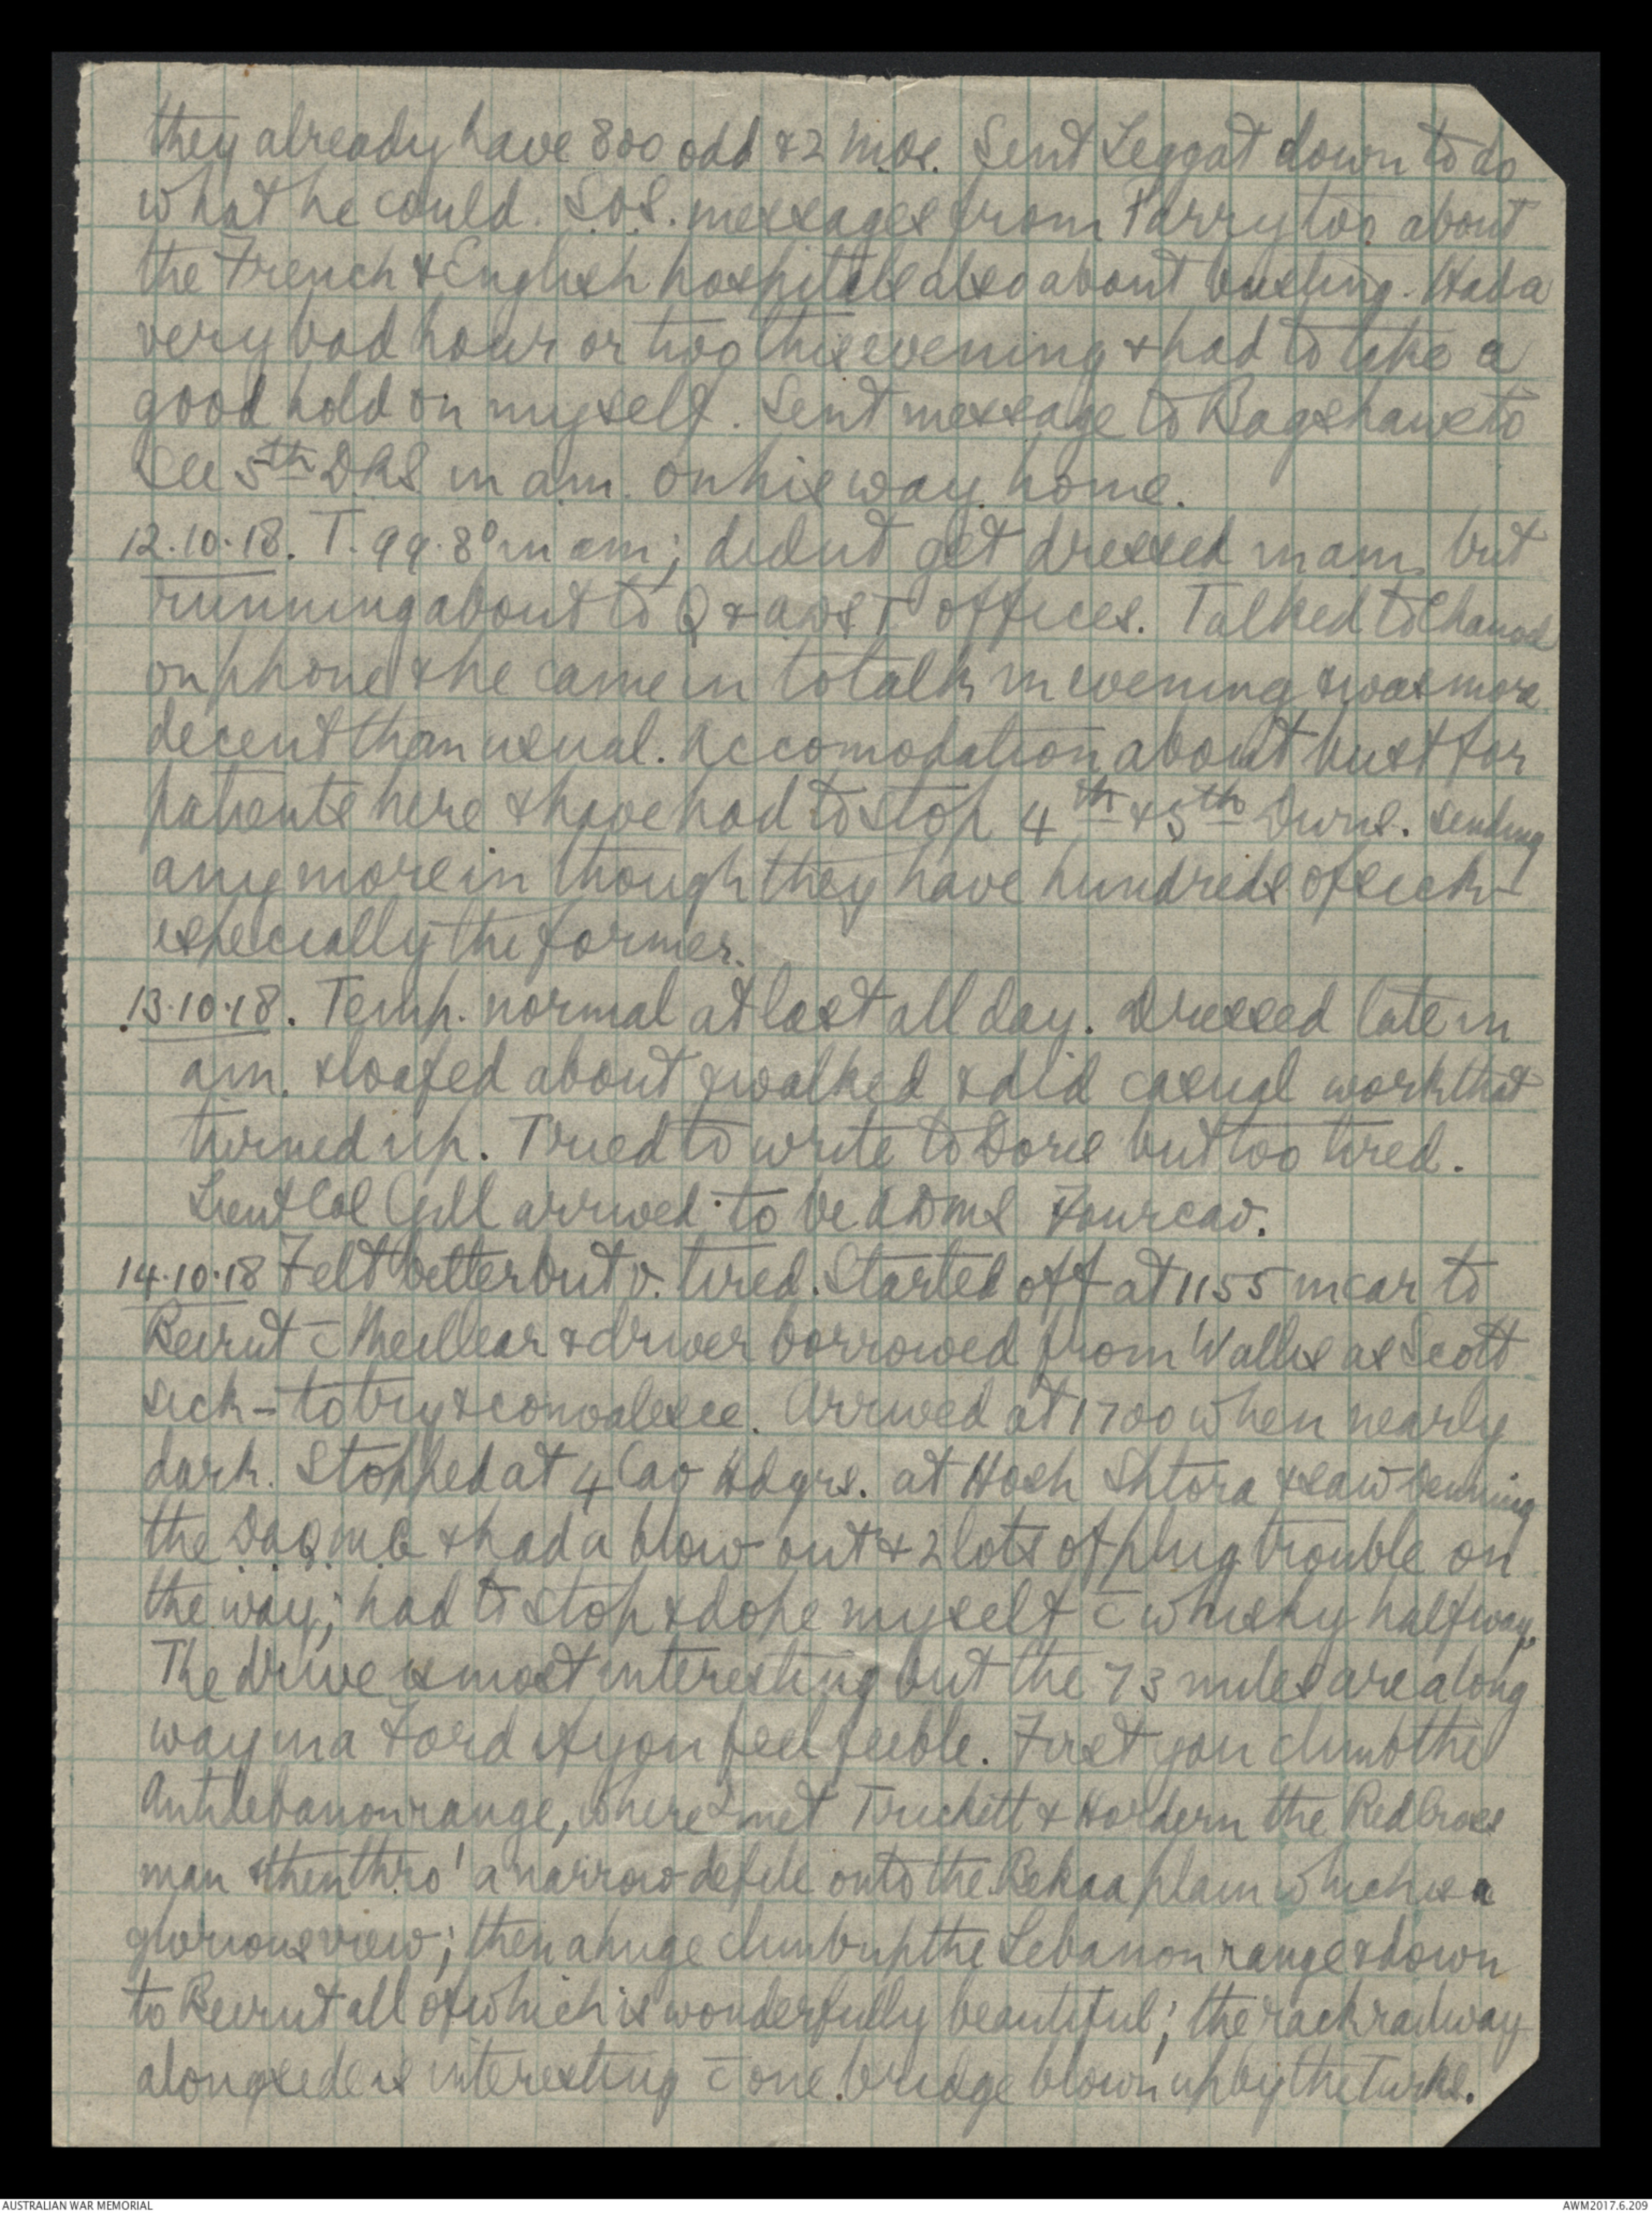 they already have 800 odd & 2 M.Os. Sent Leggat down to do
what he could. S.O.S. messages from Parry too about
the French & English hospitals also about busting. Had a
very bad hour or two this evening & had to take a
good hold on myself. Sent message to Bagshawe to
see 5th DHS in am. on his way home.
12.10.18. T. 99.8° in am; didnt get dressed in am. but
running about to Q & ADS T offices. Talked to
on phone & he came in to talk in evening & was more
decent than usual. Accomodation about bust for
patients here & have had to stop 4th & 5th Divns. sending
any more in though they have hundreds of sick -
especially the former.
13.10.18. Temp. normal at last all day. Dressed late in
am. & loafed about & walked & did casual work that
turned up. Tried to write to Doris but too tired.
Lieut Col Gill arrived to be ADMS Fourcav.
14.10.18 Felt better but v. tired. Started off at 1155 in car to
Beirut c̄ & driver borrowed from Wallis as Scott
sick - to try & convalesce. Arrived at 1700 when nearly
dark. Stopped at 4 Cav Hdqrs. at Hosh Shtora & saw Denning
the D.A.Q.M.G & had a blow out & 2 lots of plug trouble on
the way; had to stop & dope myself c̄ whisky halfway.
The drive is most interesting but the 73 miles are a long
way in a Ford if you feel feeble. First you climb the
Antilebanon range, where I met Trickett & Hordern the Red Cross
man & then thro' a narrow defile onto the Bekaa plain which is a
glorious view; then a huge climb up the Lebanon range & down
to Beirut all of which is wonderfully beautiful; the rack railway
alongside is interesting c̄ one bridge blown up by the Turks.
AUSTRALIAN WAR MEMORIAL
AWM2017.6.209